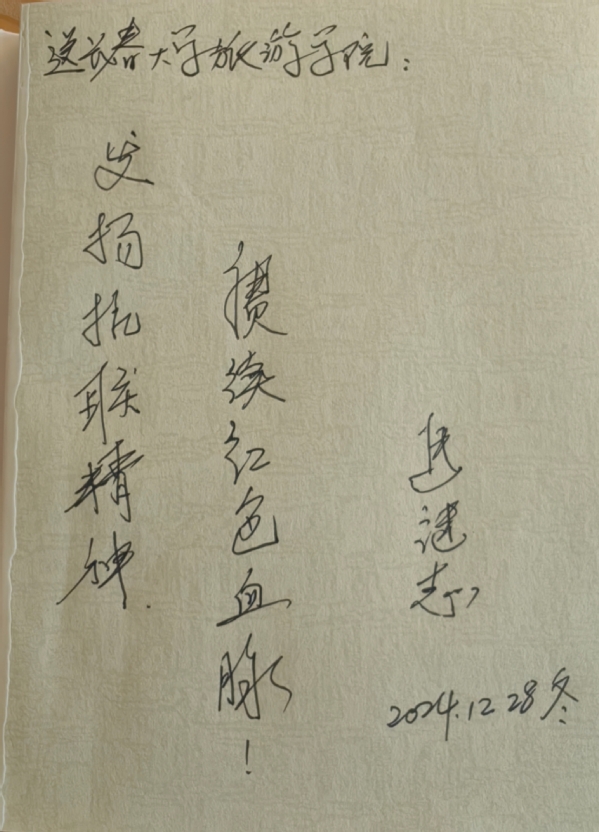 送长春大学旅游学院：
发扬抗联精神.
赓续红色血脉！
2024.12 28 冬